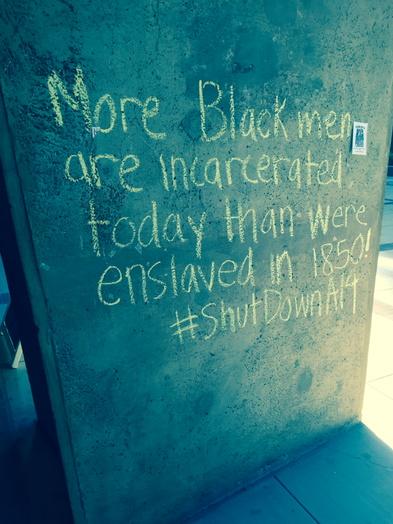 More Black men
are incarcerated
today than were
enslaved in 1850!
#ShutDownA14